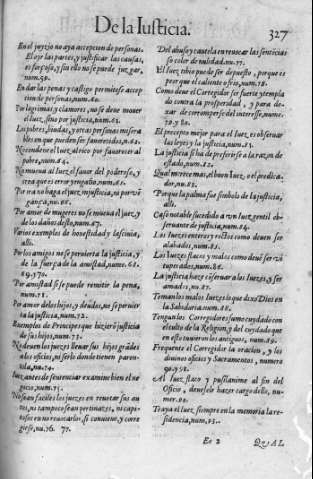 De la Iusticia.
327
En el juyzio no aya accepcion de personas.
El oyr las partes, y justificar las causas,
es forçoso, y sin ello no se puede juz gar,
num.59.
En dar las penas y castigo permitese accep
cion de personas, num.60.
Por lagrimas y clamores, no se deue mouer
el Iuez, sino por justicia, num.63.
Los pobres, biudas, y otras personas misera
bles en que pueden ser fauorecidos, nu.61.
Ni condene el Iuez, al rico por fauorecer al
pobre, num.64.
No mueua al Iuez el fauor del poderoso, y
crea que es error y engaño, num.65.
Por ira no haga el Iuez injusticia, ni por vē
gança, nu. 66.
Por amor de mugeres no se mueua el Iuez, y
de los daños desto, num.67.
Varios exemplos de honestidad y lasciuia,
alli.
Por los amigos no se peruierta la justicia, y
de la fuerça de la amistad, nume. 68.
69. y 70.
Por amistad si se puede remitir la pena,
num.71.
Por amor de los hijos, y deudos, no se peruier
ta la justicia, num.72.
Exemplos de Principes que hizierō justicia
de sus hijos, num.73.
No deuen los juezes lleuar sus hijos grādes
a los oficios, ni serlo donde tienen paren-
tela, nu.74.
Antes de sentenciar examine bien el ne-
gocio, num.75.
No sean faciles los juezes en reuocar sus au
tos, ni tampoco sean pertinazes, ni capi-
tosos en no reuocarlos, si conuiene, y corre
girse, nu.76. 77.
Del abuso y cautela en reuocar las sentēcias
so color de nulidad. nu.77.
El Iuez tibio puede ser depuesto, porque es
peor que el caliente o frio, num.78.
Como deue el Corregidor ser fuerte y templa
do contra la prosperidad, y para de-
xar de corromperse del interesse, nume.
79. y 80.
El precepto mejor para el Iuez, es obseruar
las leyes y la justicia, num.81.
La justicia si ha de preferirse a la razon de
estado, num.82.
Qual merece mas, el buen Iuez, o el predica-
dor, nu.82.
Porque la palma fue simbolo de la justicia,
alli.
Caso notable sucedido a vn Iuez gentil ob-
seruante de justicia, num.84.
Los Iuezes enteros y rectos como deuen ser
alabados, num.85.
Los Iuezes flacos y malos como deuē ser vi
tuperados, num.86.
La justicia haze obseruar a los Iuezes, y ser
amados, nu.87.
Toman los malos Iuezes lo que dixo Dios en
la Sabiduria. num.88.
Tengan los Corregidores sumo cuydado con
el culto de la Religion, y del cuydado que
en esto tuuieron los antiguos, num.89.
Frequente el Corregidor la oracion, y los
diuinos oficios y Sacramentos, numero
90. y 92.
Al Iuez flaco y pusilanime al fin del
Oficio, deuesele hazer cargo dello, nu-
mer.92.
Traya el Iuez siempre en la memoria la re-
sidencia, num.93.
Ee 2